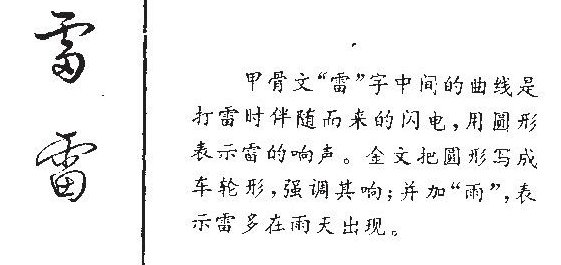 雷
雷
甲骨文“雷”字中间的曲线是
打雷时伴随而来的闪电，用圆形
表示雷的响声。金文把圆形写成
车轮形，强调其响；并加“雨”，表
示雷多在雨天出现。